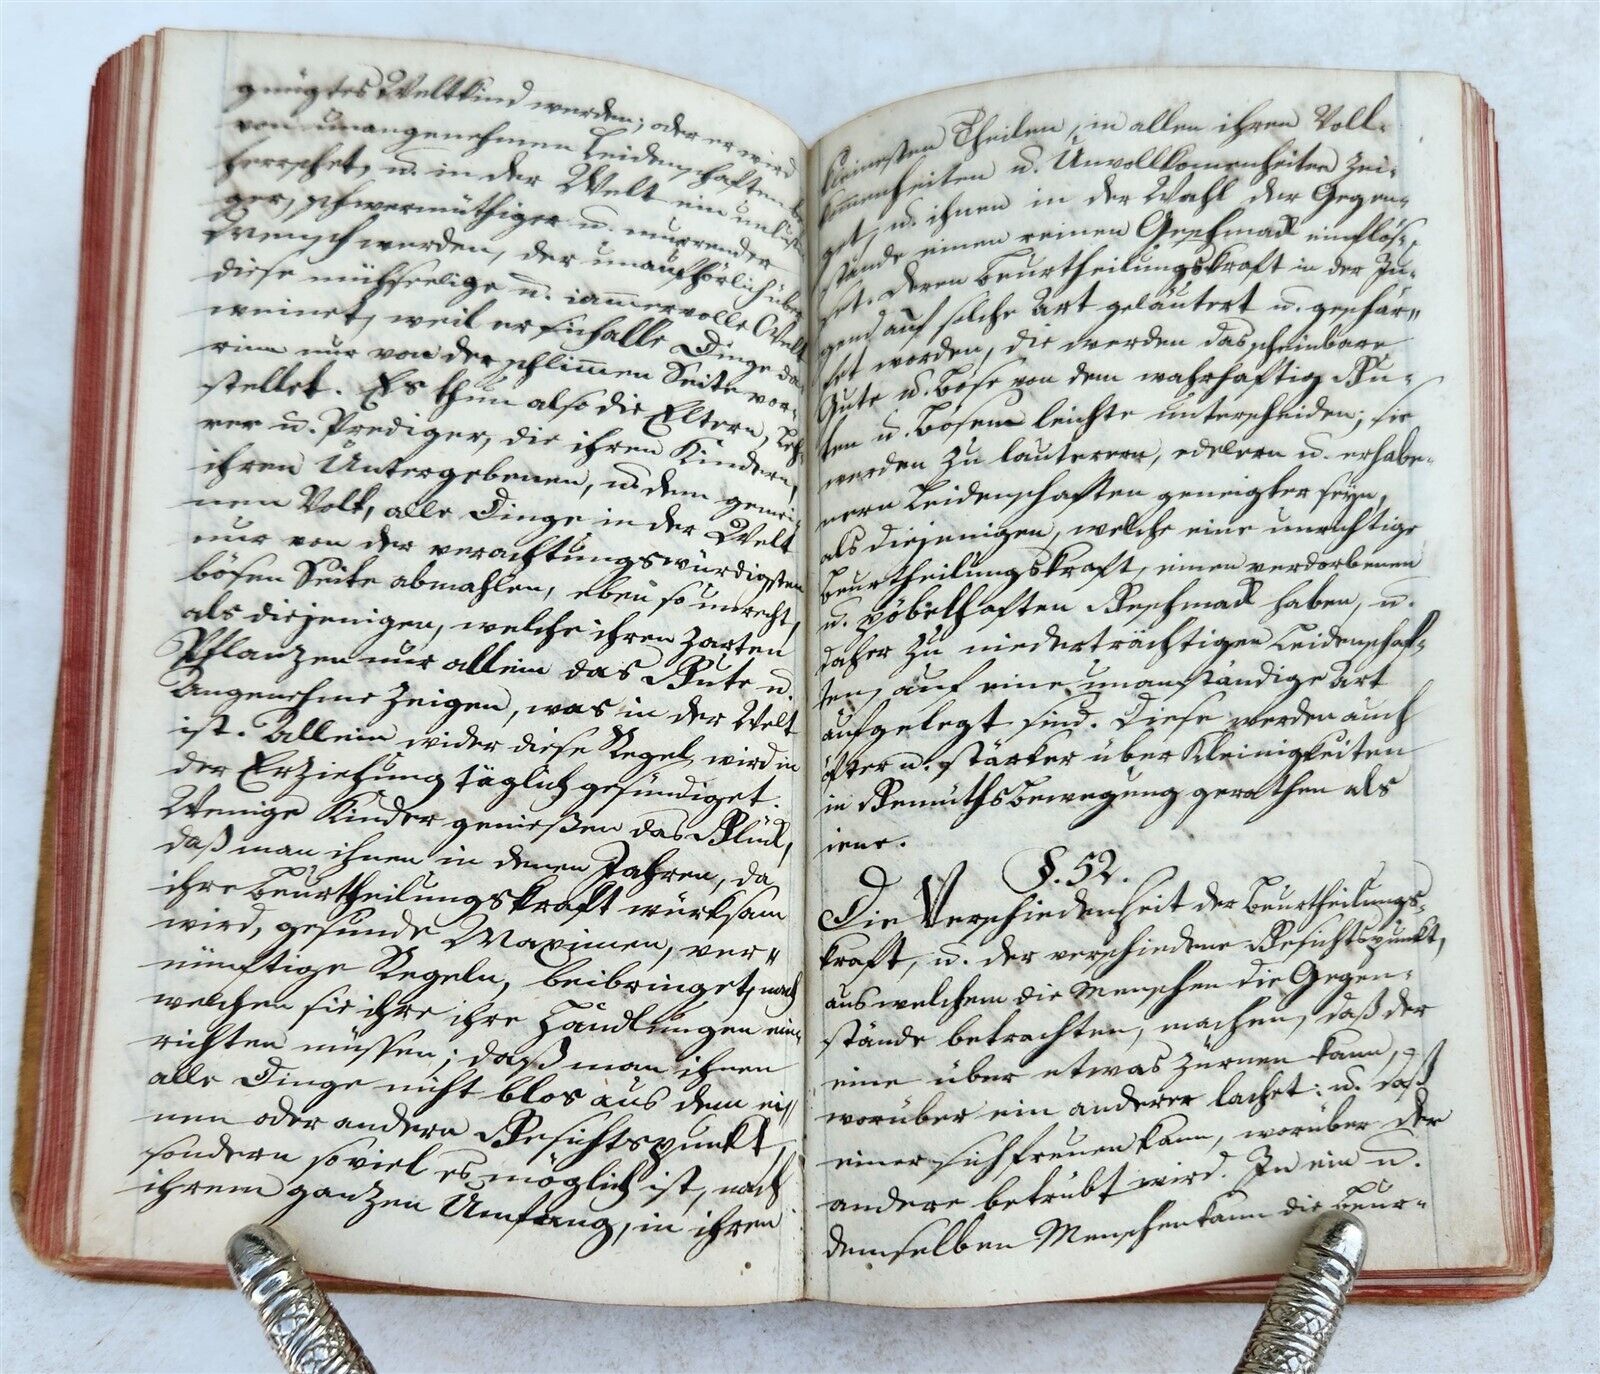 gnügtes Weltkind werden; oder er wird
von unangenehmen Leidenschaften be-
herrschet, u. in der Welt ein unlusti-
ger, schwermüthiger u. murrender
Mensch werden, der unaufhörlich über
diese mühseelige u. iammervolle Welt
weinet, weil er sich alle Dinge da-
rinn nur von der schlim̄en Seite vor-
stellet. Es thun also die Eltern, Leh-
rer u. Prediger, die ihren Kindern,
ihren Untergebenen, u. dem gemei-
nen Volk, alle Dinge in der Welt
nur von der verachtungswürdigsten
bösen Seite abmahlen, eben so unrecht,
als diejenigen, welche ihren zarten
Pflanzen nur allein das Gute u.
Angenehme zeigen, was in der Welt
ist. Allein wider diese Regel wird in
der Erziehung täglich gesündiget.
Wenige Kinder genießen das Glück,
daß man ihnen in denen Jahren, da
ihre Beurtheilungskraft würksam
wird, gesunde Maximen, ver-
nünftige Regeln, beibringet, nach
welchen sie ihre ihre Handlungen ein-
richten müssen; daß man ihnen
alle Dinge nicht blos aus dem ei-
nen oder andern Gesichtspunkt,
sondern so viel es möglich ist, nach
ihrem ganzen Umfang, in ihren
kleinesten Theilen, in allen ihren Voll-
kommenheiten u. Unvollkomenheiten zei-
get, u. ihnen in der Wahl der Gegen-
stände einen reinen Geschmack einflös-
set. Deren Beurtheilungskraft in der Ju-
gend auf solche Art geläutert u. geschär-
fet worden, die werden das scheinbare
Gute u. Böse von dem wahrhaftig Gu-
ten u. Bösem leichte unterscheiden; sie
werden zu lauterern, edelern u. erhabe-
nern Leidenschaften geneigter seyn,
als diejenigen, welche eine unrichtige
Beurtheilungskraft, einen verdorbenen
u. pöbelhaften Geschmack haben, u.
daher zu niederträchtigen Leidenschaf-
ten, auf eine unanständige Art
aufgelegt sind. Diese werden auch
öfter u. stärker über Kleinigkeiten
in Gemüthsbewegung gerathen als
iene.
§. 52.
Die Verschiedenheit der Beurtheilungs-
kraft, u. der verschiedene Gesichtspunkt,
aus welchem die Menschen die Gegen-
stände betrachten, machen, daß der
eine über etwas zürnen kann,
worüber ein anderer lachet: u. daß
einer sich freuen kann, worüber der
andere betrübt wird. In ein u.
demselben Menschen kann die Beur-